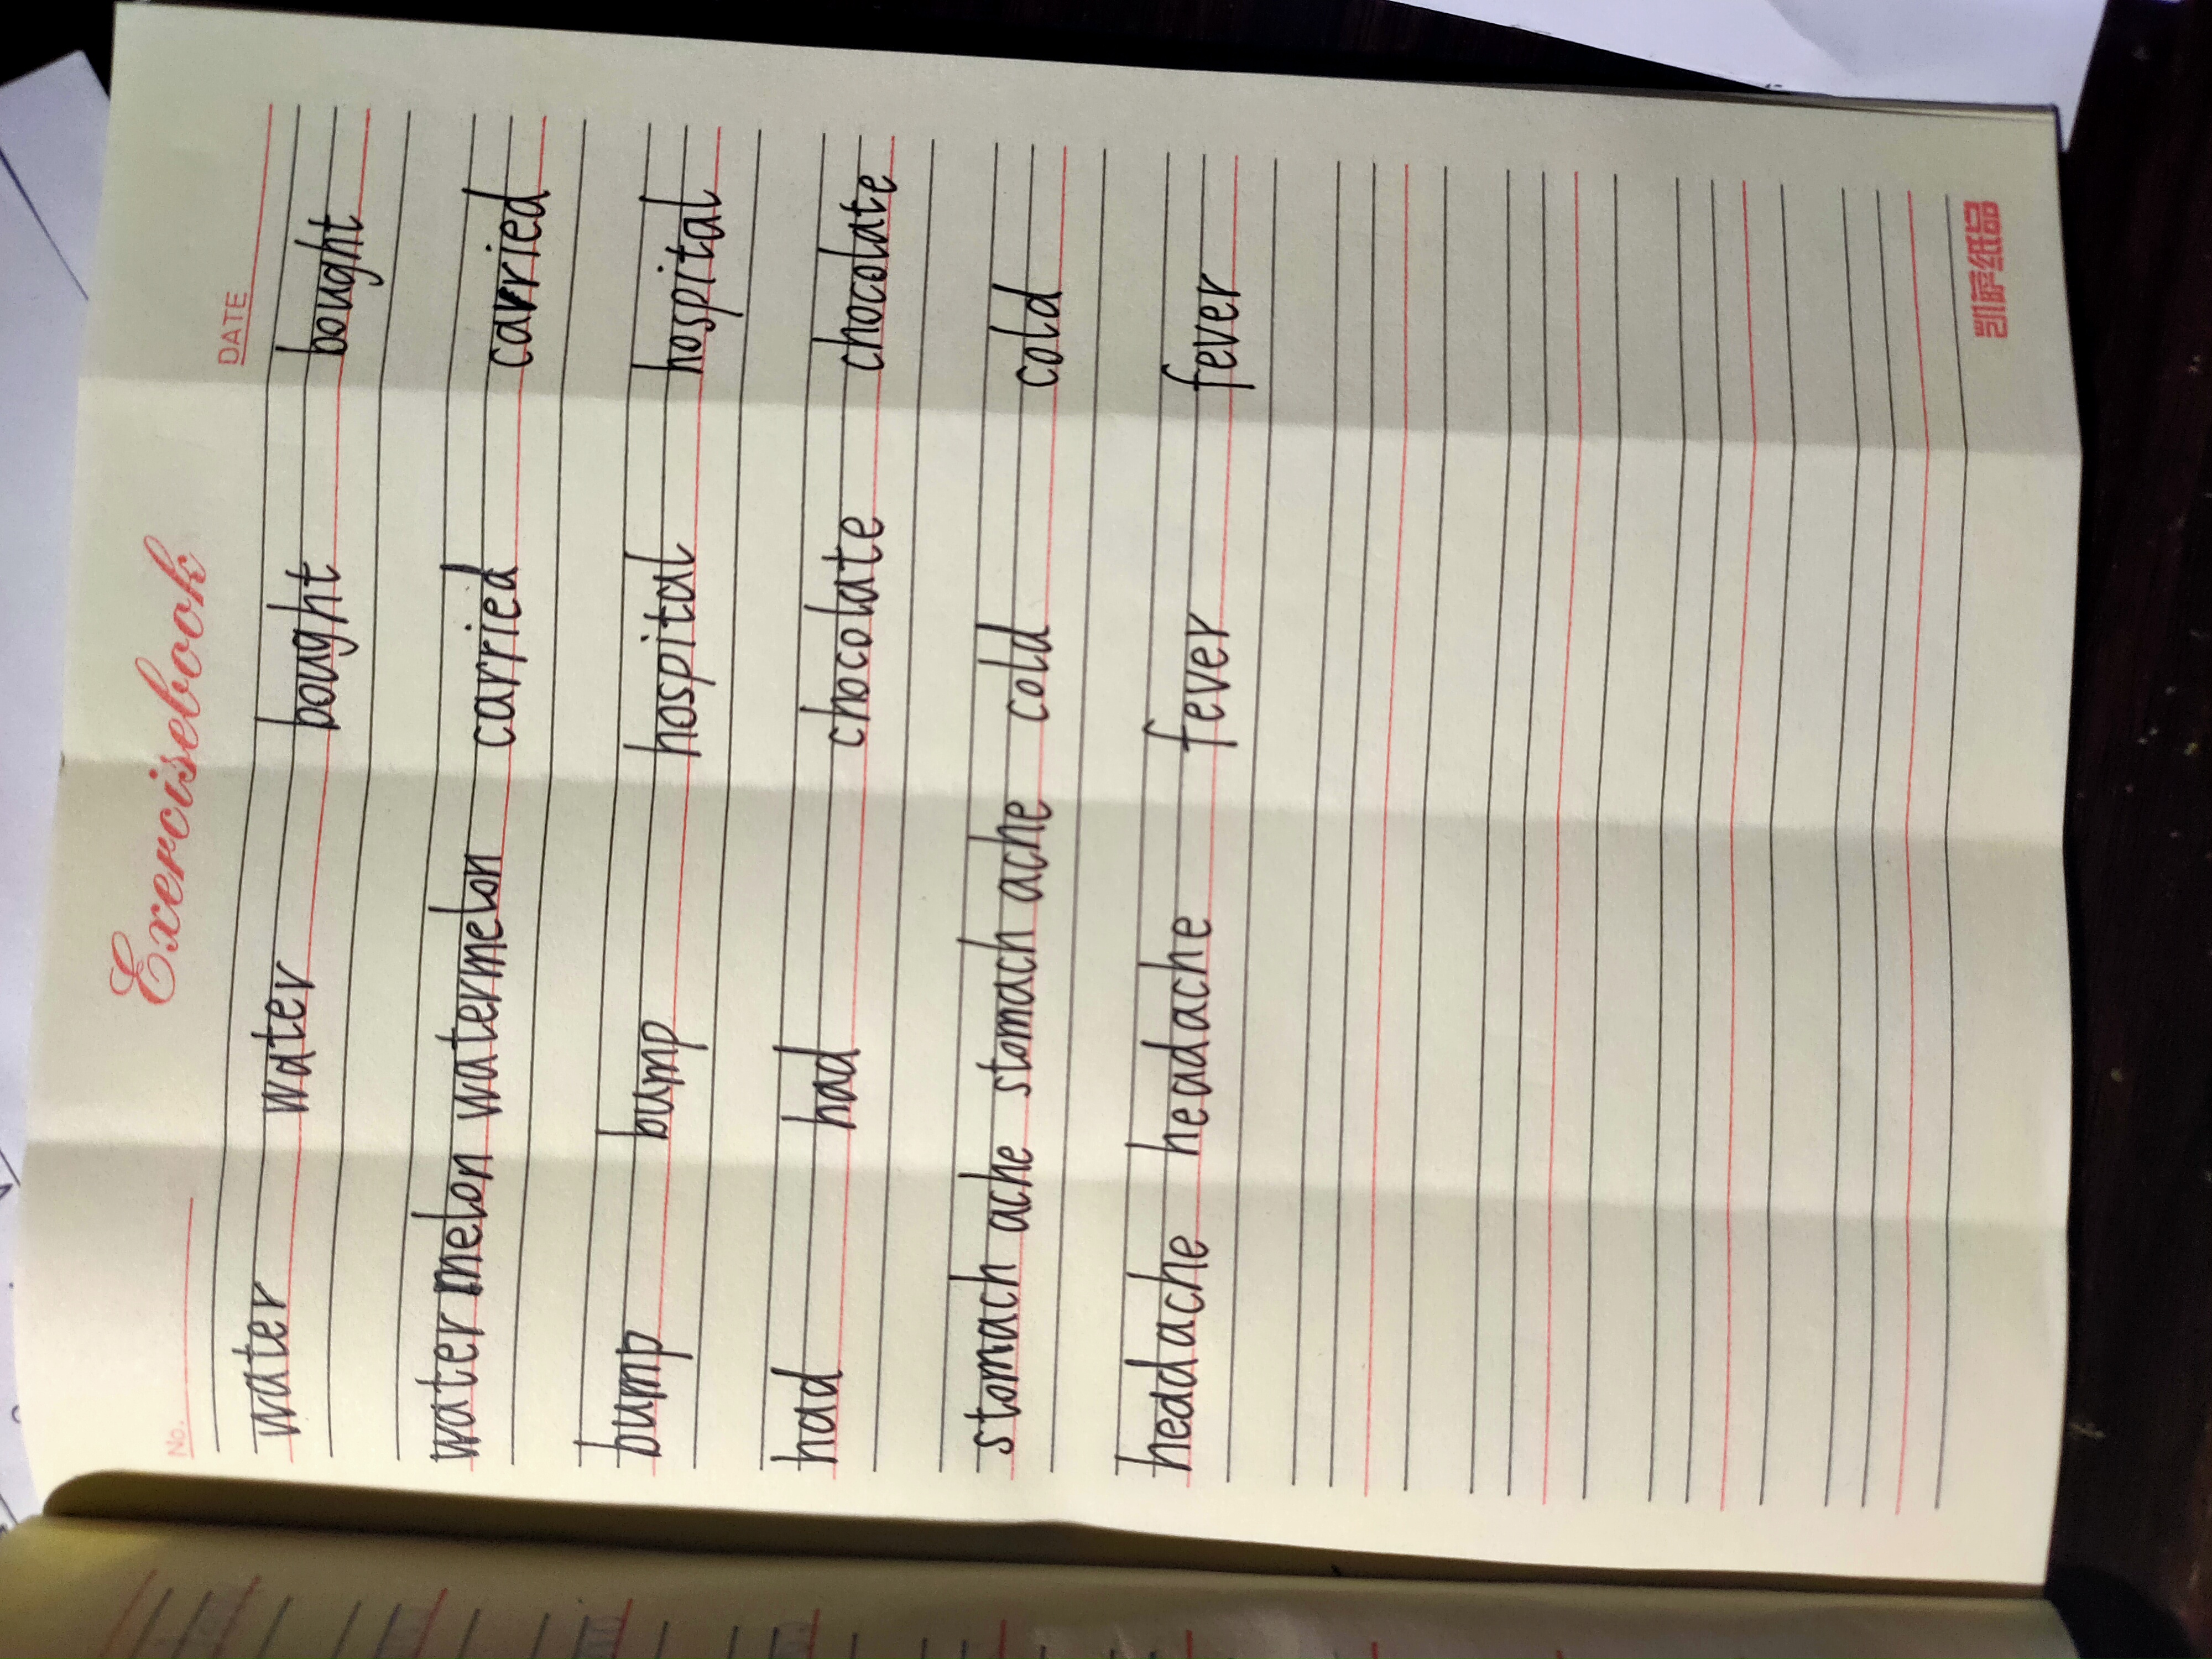 Exercisebook
No. DATE
water water bought bought
watermelon watermelon carried carried
bump bump hospital hospital
had had chocolate chocolate
stomach ache stomach ache cold cold
headache headache fever fever
凯萨纸品